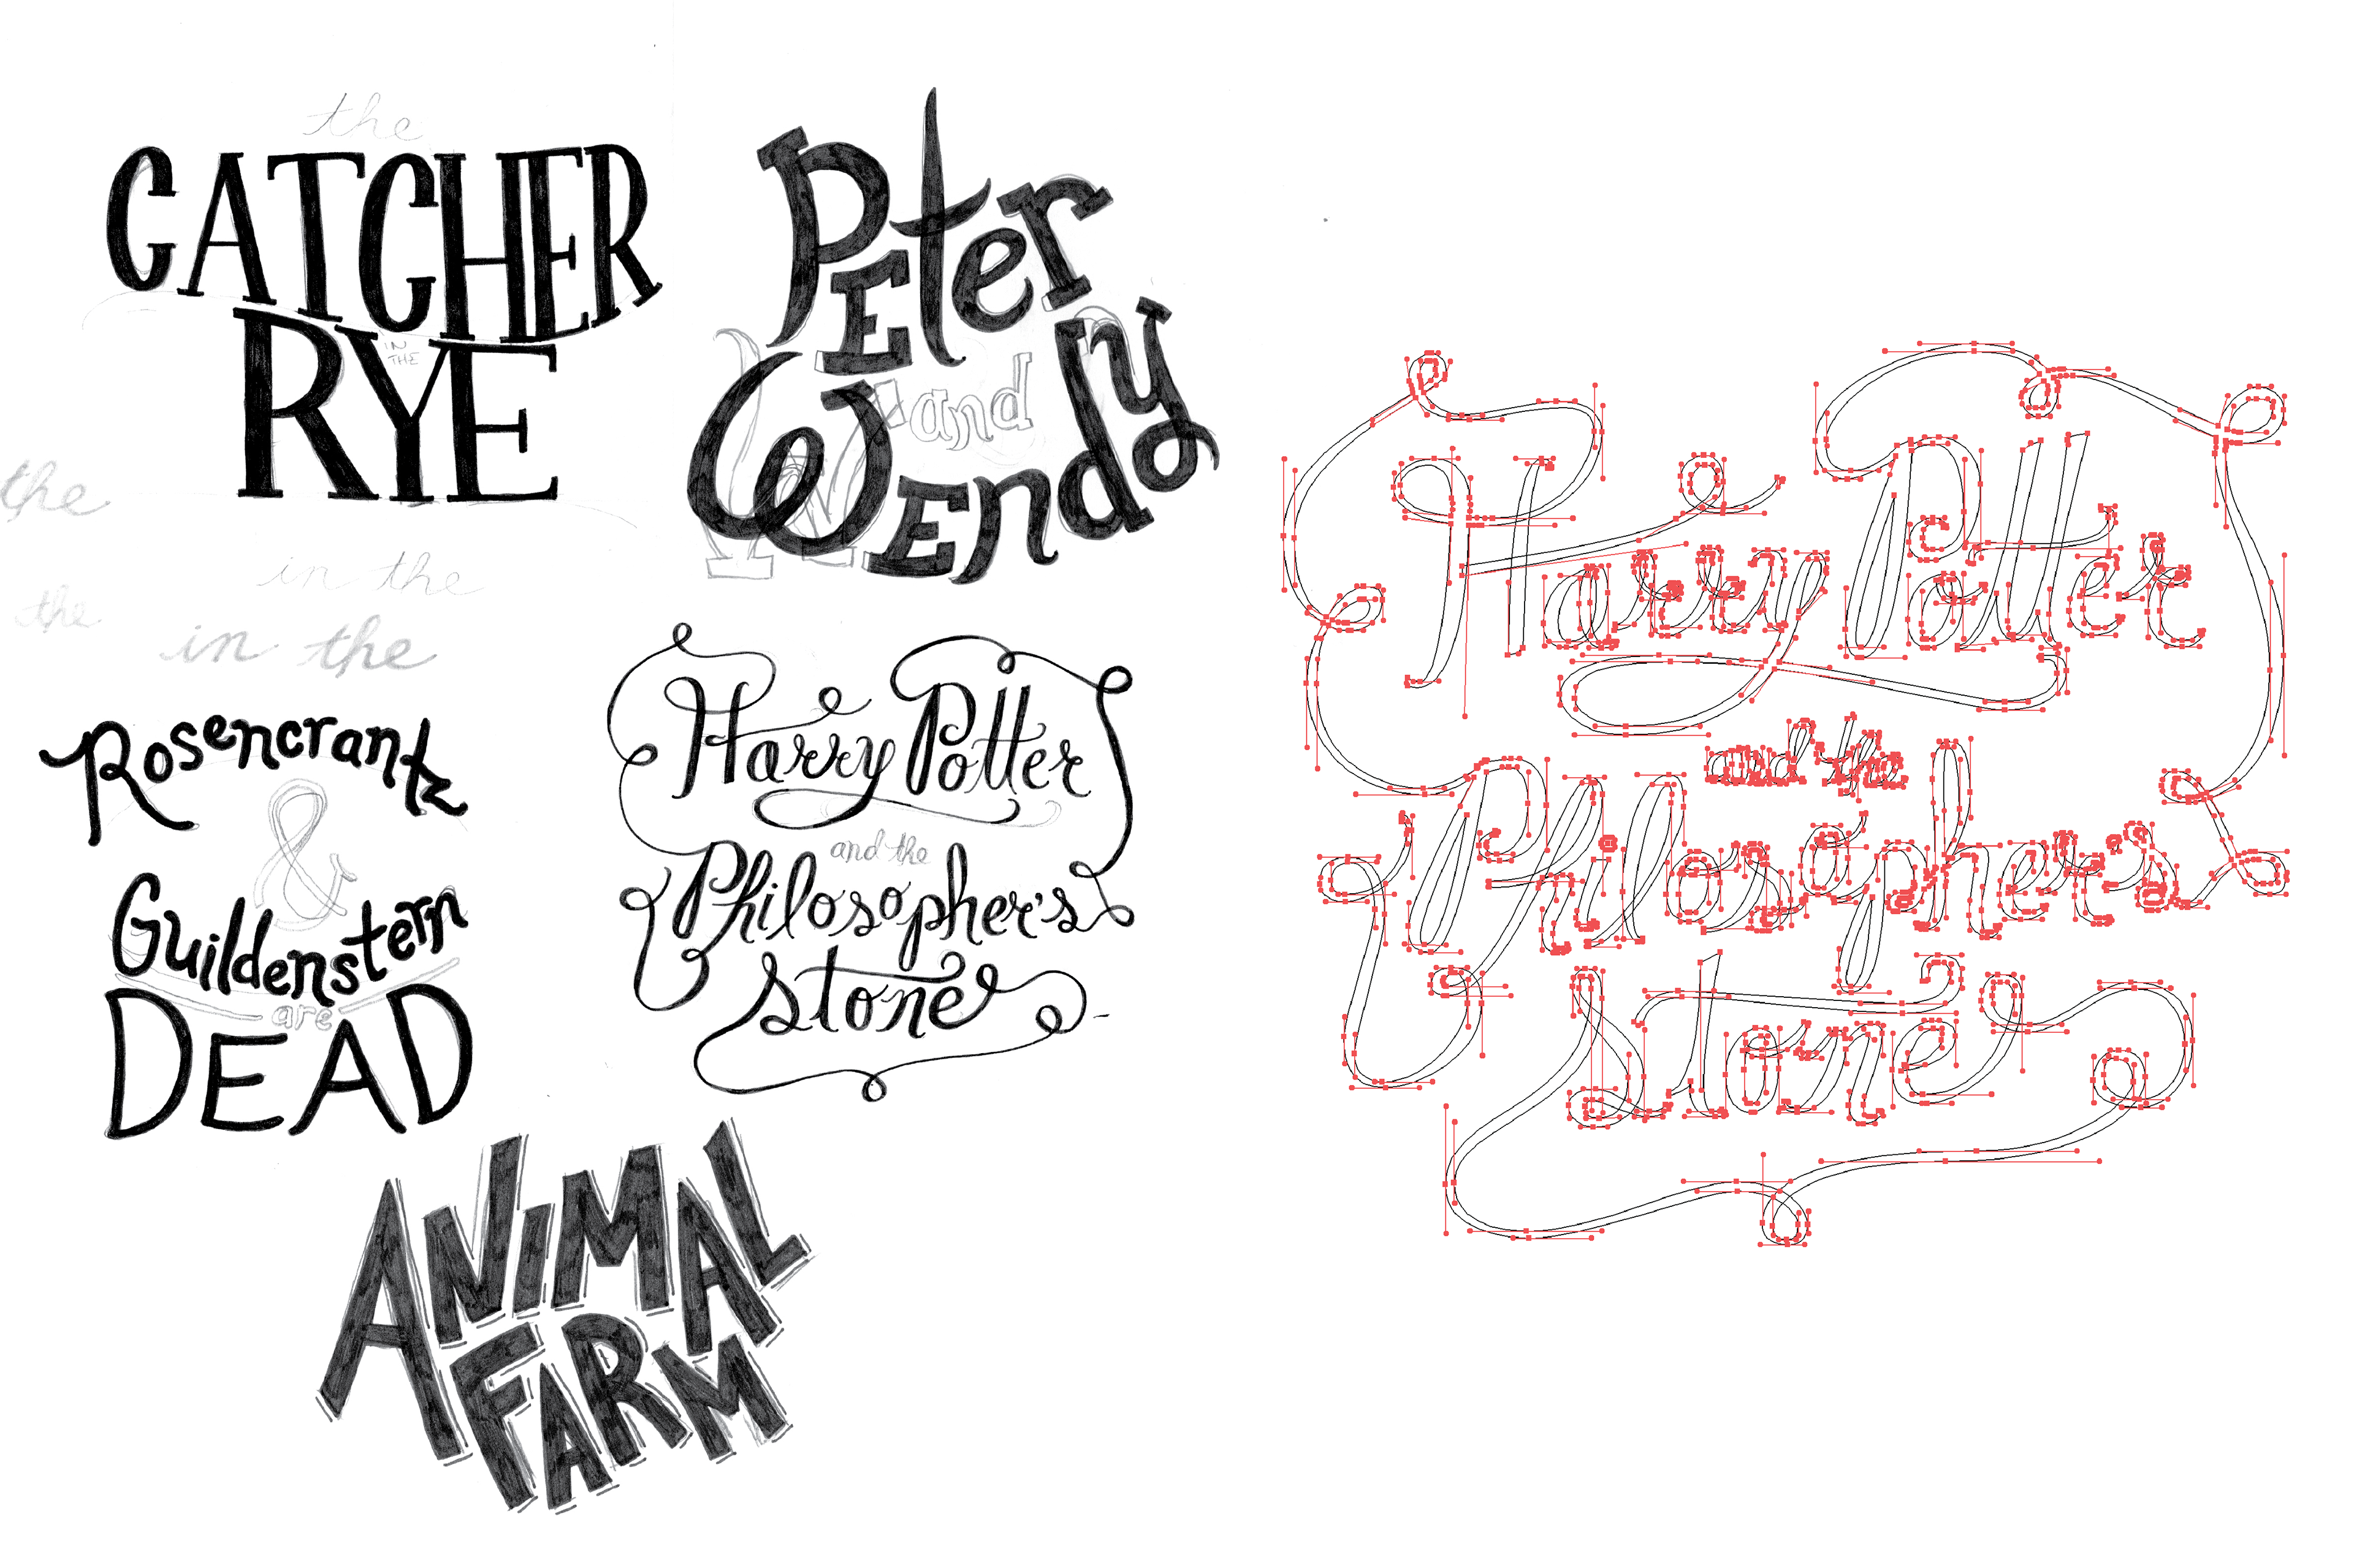 the
CATCHER
IN THE
RYE
the
in the
the
in the
Peter
and
Wendy
Rosencrantz
&
Guildenstern
are
DEAD
Harry Potter
and the
Philosopher's
stone
ANIMAL
FARM
Harry Potter
and the
Philosopher's
stone